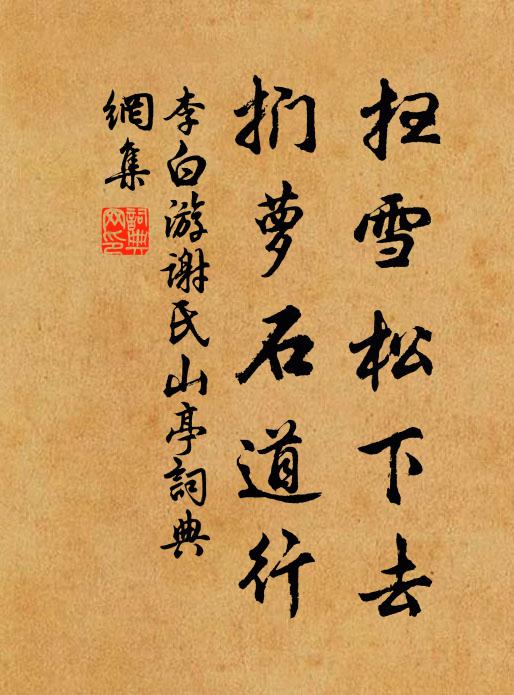 扫雪松下去
捫萝石道行
李白游谢氏山亭詞典
網集
詞典网印